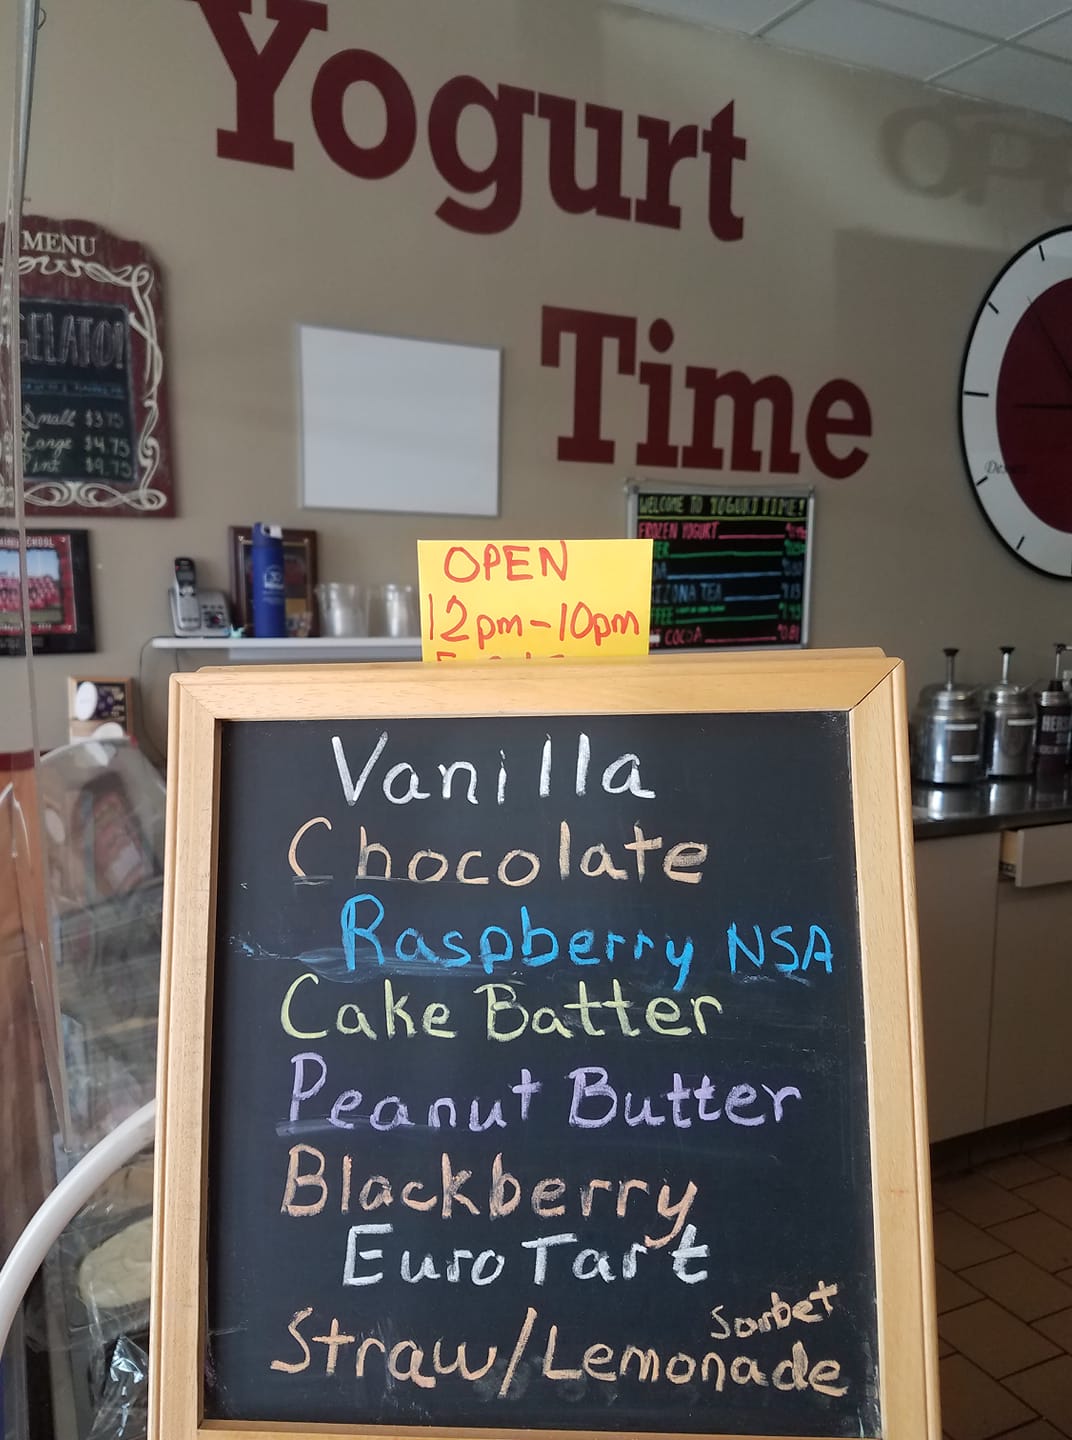 Yogurt
Time
OPE
MENU
GELATO!
Small $3.75
Large $4.75
Pint $9.75
WELCOME TO YOGURT TIME!
FROZEN YOGURT
TEA
COCOA
OPEN
12pm-10pm
Vanilla
Chocolate
Raspberry NSA
Cake Batter
Peanut Butter
Blackberry
Euro Tart
Sorbet
Straw/Lemonade